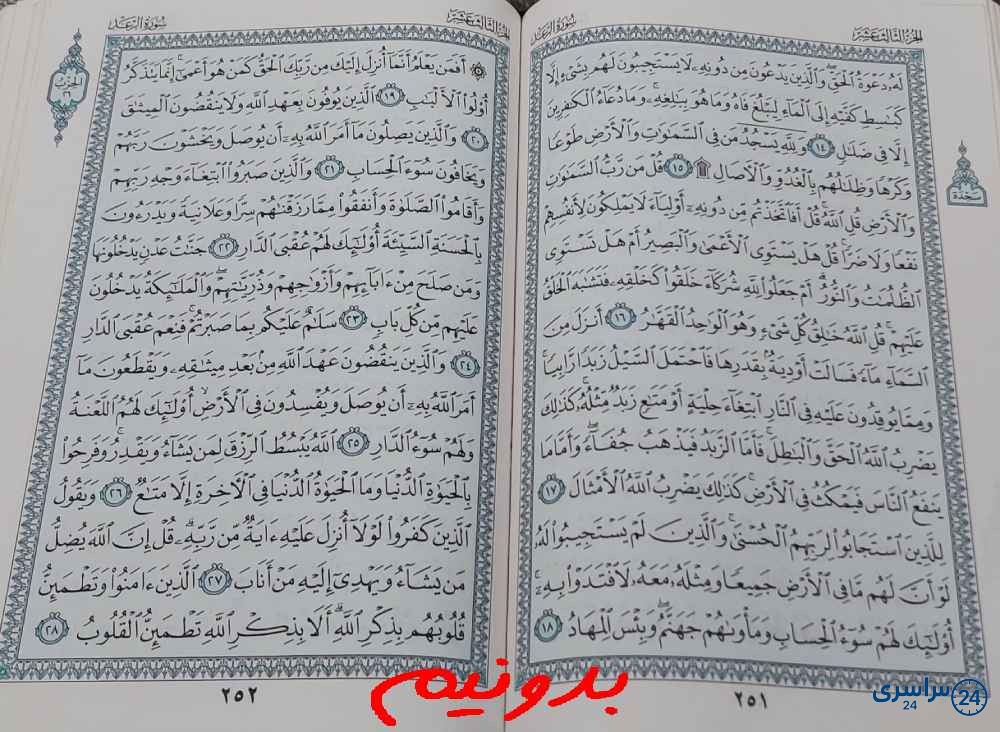 الجزء الثالث عشر
سورة الرعد
لَهُۥ دَعۡوَةُ ٱلۡحَقِّۚ وَٱلَّذِينَ يَدۡعُونَ مِن دُونِهِۦ لَا يَسۡتَجِيبُونَ لَهُم بِشَيۡءٍ إِلَّا
كَبَٰسِطِ كَفَّيۡهِ إِلَى ٱلۡمَآءِ لِيَبۡلُغَ فَاهُ وَمَا هُوَ بِبَٰلِغِهِۦۚ وَمَا دُعَآءُ ٱلۡكَٰفِرِينَ
إِلَّا فِي ضَلَٰلٖ ١٤ وَلِلَّهِۤ يَسۡجُدُۤ مَن فِي ٱلسَّمَٰوَٰتِ وَٱلۡأَرۡضِ طَوۡعٗا
وَكَرۡهٗا وَظِلَٰلُهُم بِٱلۡغُدُوِّ وَٱلۡأٓصَالِ ۩ ١٥ قُلۡ مَن رَّبُّ ٱلسَّمَٰوَٰتِ
وَٱلۡأَرۡضِ قُلِ ٱللَّهُۚ قُلۡ أَفَٱتَّخَذۡتُم مِّن دُونِهِۦٓ أَوۡلِيَآءَ لَا يَمۡلِكُونَ لِأَنفُسِهِمۡ
نَفۡعٗا وَلَا ضَرّٗاۚ قُلۡ هَلۡ يَسۡتَوِي ٱلۡأَعۡمَىٰ وَٱلۡبَصِيرُ أَمۡ هَلۡ تَسۡتَوِي
ٱلظُّلُمَٰتُ وَٱلنُّورُۗ أَمۡ جَعَلُواْ لِلَّهِ شُرَكَآءَ خَلَقُواْ كَخَلۡقِهِۦ فَتَشَٰبَهَ ٱلۡخَلۡقُ
عَلَيۡهِمۡۚ قُلِ ٱللَّهُ خَٰلِقُ كُلِّ شَيۡءٖ وَهُوَ ٱلۡوَٰحِدُ ٱلۡقَهَّٰرُ ١٦ أَنزَلَ مِنَ
ٱلسَّمَآءِ مَآءٗ فَسَالَتۡ أَوۡدِيَةُۢ بِقَدَرِهَا فَٱحۡتَمَلَ ٱلسَّيۡلُ زَبَدٗا رَّابِيٗاۖ
وَمِمَّا يُوقِدُونَ عَلَيۡهِ فِي ٱلنَّارِ ٱبۡتِغَآءَ حِلۡيَةٍ أَوۡ مَتَٰعٖ زَبَدٞ مِّثۡلُهُۥۚ كَذَٰلِكَ
يَضۡرِبُ ٱللَّهُ ٱلۡحَقَّ وَٱلۡبَٰطِلَۚ فَأَمَّا ٱلزَّبَدُ فَيَذۡهَبُ جُفَآءٗۖ وَأَمَّا مَا
يَنفَعُ ٱلنَّاسَ فَيَمۡكُثُ فِي ٱلۡأَرۡضِۚ كَذَٰلِكَ يَضۡرِبُ ٱللَّهُ ٱلۡأَمۡثَالَ ١٧
لِلَّذِينَ ٱسۡتَجَابُواْ لِرَبِّهِمُ ٱلۡحُسۡنَىٰۚ وَٱلَّذِينَ لَمۡ يَسۡتَجِيبُواْ لَهُۥ
لَوۡ أَنَّ لَهُم مَّا فِي ٱلۡأَرۡضِ جَمِيعٗا وَمِثۡلَهُۥ مَعَهُۥ لَٱفۡتَدَوۡاْ بِهِۦٓۚ
أُوْلَٰٓئِكَ لَهُمۡ سُوٓءُ ٱلۡحِسَابِ وَمَأۡوَىٰهُمۡ جَهَنَّمُۖ وَبِئۡسَ ٱلۡمِهَادُ ١٨
٢٥١
سجدة
الجزء الثالث عشر
سورة الرعد
الحزب
٢٦
۞ أَفَمَن يَعۡلَمُ أَنَّمَآ أُنزِلَ إِلَيۡكَ مِن رَّبِّكَ ٱلۡحَقُّ كَمَنۡ هُوَ أَعۡمَىٰٓۚ إِنَّمَا يَتَذَكَّرُ
أُوْلُواْ ٱلۡأَلۡبَٰبِ ١٩ ٱلَّذِينَ يُوفُونَ بِعَهۡدِ ٱللَّهِ وَلَا يَنقُضُونَ ٱلۡمِيثَٰقَ
٢٠ وَٱلَّذِينَ يَصِلُونَ مَآ أَمَرَ ٱللَّهُ بِهِۦٓ أَن يُوصَلَ وَيَخۡشَوۡنَ رَبَّهُمۡ
وَيَخَافُونَ سُوٓءَ ٱلۡحِسَابِ ٢١ وَٱلَّذِينَ صَبَرُواْ ٱبۡتِغَآءَ وَجۡهِ رَبِّهِمۡ
وَأَقَامُواْ ٱلصَّلَوٰةَ وَأَنفَقُواْ مِمَّا رَزَقۡنَٰهُمۡ سِرّٗا وَعَلَانِيَةٗ وَيَدۡرَءُونَ
بِٱلۡحَسَنَةِ ٱلسَّيِّئَةَ أُوْلَٰٓئِكَ لَهُمۡ عُقۡبَى ٱلدَّارِ ٢٢ جَنَّٰتُ عَدۡنٖ يَدۡخُلُونَهَا
وَمَن صَلَحَ مِنۡ ءَابَآئِهِمۡ وَأَزۡوَٰجِهِمۡ وَذُرِّيَّٰتِهِمۡۖ وَٱلۡمَلَٰٓئِكَةُ يَدۡخُلُونَ
عَلَيۡهِم مِّن كُلِّ بَابٖ ٢٣ سَلَٰمٌ عَلَيۡكُم بِمَا صَبَرۡتُمۡۚ فَنِعۡمَ عُقۡبَى ٱلدَّارِ
٢٤ وَٱلَّذِينَ يَنقُضُونَ عَهۡدَ ٱللَّهِ مِنۢ بَعۡدِ مِيثَٰقِهِۦ وَيَقۡطَعُونَ مَآ
أَمَرَ ٱللَّهُ بِهِۦٓ أَن يُوصَلَ وَيُفۡسِدُونَ فِي ٱلۡأَرۡضِ أُوْلَٰٓئِكَ لَهُمُ ٱللَّعۡنَةُ
وَلَهُمۡ سُوٓءُ ٱلدَّارِ ٢٥ ٱللَّهُ يَبۡسُطُ ٱلرِّزۡقَ لِمَن يَشَآءُ وَيَقۡدِرُۚ وَفَرِحُواْ
بِٱلۡحَيَوٰةِ ٱلدُّنۡيَا وَمَا ٱلۡحَيَوٰةُ ٱلدُّنۡيَا فِي ٱلۡأٓخِرَةِ إِلَّا مَتَٰعٞ ٢٦ وَيَقُولُ
ٱلَّذِينَ كَفَرُواْ لَوۡلَآ أُنزِلَ عَلَيۡهِ ءَايَةٞ مِّن رَّبِّهِۦۗ قُلۡ إِنَّ ٱللَّهَ يُضِلُّ
مَن يَشَآءُ وَيَهۡدِيٓ إِلَيۡهِ مَنۡ أَنَابَ ٢٧ ٱلَّذِينَ ءَامَنُواْ وَتَطۡمَئِنُّ
قُلُوبُهُم بِذِكۡرِ ٱللَّهِۗ أَلَا بِذِكۡرِ ٱللَّهِ تَطۡمَئِنُّ ٱلۡقُلُوبُ ٢٨
٢٥٢
بدونیم
سراسری 24
24